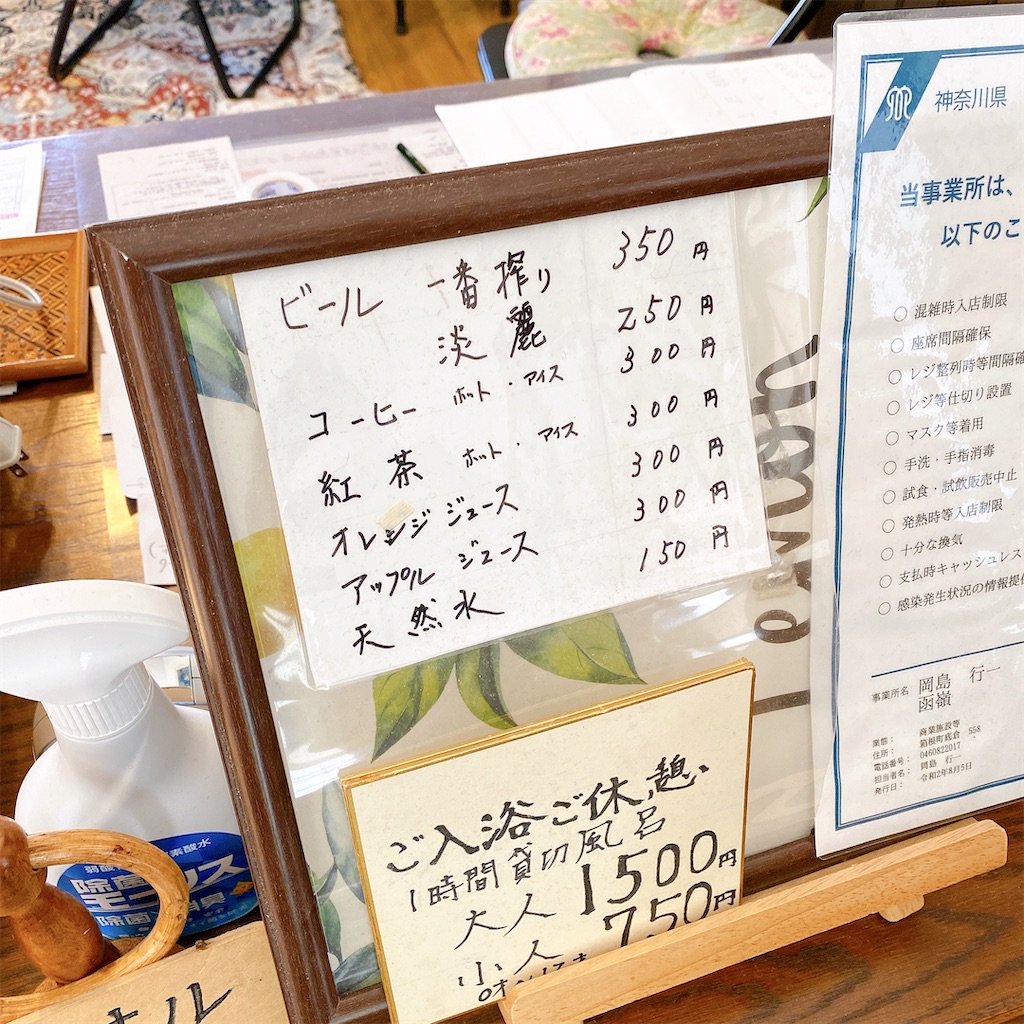 ビール 一番搾り 350円
淡麗 250円
コーヒー ホット・アイス 300円
紅茶 ホット・アイス 300円
オレンジジュース 300円
アップル ジュース 300円
天然水 150円
Lemon
ご入浴ご休憩
1時間貸切風呂
大人 1500円
小人 750円
神奈川県
当事業所は、
以下のこ
○ 混雑時入店制限
○ 座席間隔確保
○ レジ整列時等間隔確
○ レジ等仕切り設置
○ マスク等着用
○ 手洗・手指消毒
○ 試食・試飲販売中止
○ 発熱時等入店制限
○ 十分な換気
○ 支払時キャッシュレス
○ 感染発生状況の情報提供
事業所名 岡島 行一
函嶺
業態： 商業施設等
住所： 箱根町底倉 558
電話番号： 0460822017
担当者名： 岡島 行一
発行日： 令和2年8月5日
素酸水
弱酸
除菌
除菌 消臭
オル